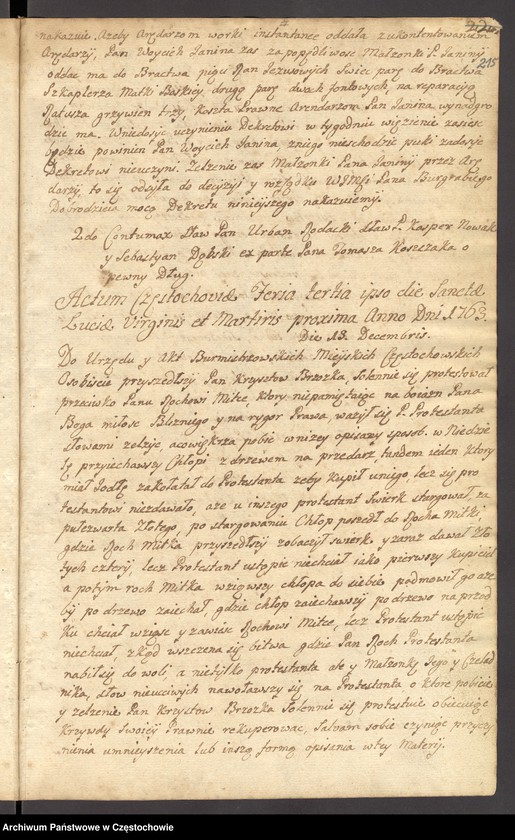 215
nakazuie. Azeby Arędarzom worki instantanee oddała z ukontentowaniem
Arędarzy, Pan Woyciech Janina zas za popędliwosc Małzonki P. Janiny
oddac ma do Bractwa pięciu Ran Jezusowych Swiec parę do Bractwa
Szkaplerza Matki Boskiey, drugą parę dwuch fontowych, na reparacyą
Ratusza grzywien trzy, koszta Prawne Arendarzom Pan Janina, wynadgro
dzic ma. Wniedosyc uczynieniu Dekretowi w tygodniu więzienie zasiesc
będzie powinien Pan Woyciech Janina, z niego nieschodzic puki zadosyc
Dekretowi nieuczyni. Zelzenie zas Małzonki Pana Janiny przez Arę
darzy, to się odsyła do decyzyi y rozsądku WJMci Pana Burgrabiego
Dobrodzieia mocą Dekretu ninieyszego nakazuiemy.
2do Contumax Sław Pan Urban Rodacki Sław P. Kasper Nowak
y Sebastyan Dębski ex parte Pana Tomasza Koszczaka o
pewny Dług.
Actum Częstochoviæ Feria tertia ipso die Sanctæ
Luciæ Virginis et Martiris proxima Anno Dni 1763.
Die 13. Decembris.
Do Urzędu y Akt Burmistrzowskich Mieyskich Częstochowskich
Osobiscie przyszedłszy Pan Krzysztow Brzozka, Solennie się protestował
przeciwko Panu Rochowi Mitce, ktory niepamiętaiąc na boiazn Pana
Boga miłosc Blizniego y na rygor Prawa, wazył się P. Protestanta
słowami zelzyc, a co większa pobic w nizey opisany sposob. w Niedzie
lę przyiechawszy Chłopi z drzewem na przedarz, tandem ieden ktory
miał Jodłę zakołatał do Protestanta zeby kupił u niego, lecz się pro
testantowi niezdawało, aze u inszego protestant swierk stargował, za
pułczwarta Złotego, po stargowaniu Chłop poszedł do Rocha Mitki
gdzie Roch Mitka przyszedłszy zobaczył swierk y zaraz dawał zło
tych czterij, lecz Protestant ustąpic niechciał iako pierwszy kupiciel
a potym roch Mitka wziąwszy chłopa do siebie podmowił go aze
by po drzewo zaiechał, gdzie chłop zaiechawszy po drzewo na przod
ku chciał wziąsc y zawiesc Rochowi Mitce, lecz Protestant ustąpic
niechciał, zkąd wszczena się bitwa gdzie Pan Roch Protestanta
nabił się do woli, a nietylko protestanta ale y Małzonkę Jego y Czelad
nika, słow nieuczciwych nawoławszy się na Protestanta o ktore pobicie
y zelzenie Pan Krzysztow Brzozka Solennie się protestuie obiecuiąc
Krzywdy Swoiey Prawnie rekuperowac, Salvam sobie czyniąc przyczy
nienia umnieyszenia lub inszą formą opisania w tey Materij.
Archiwum Państwowe w Częstochowie